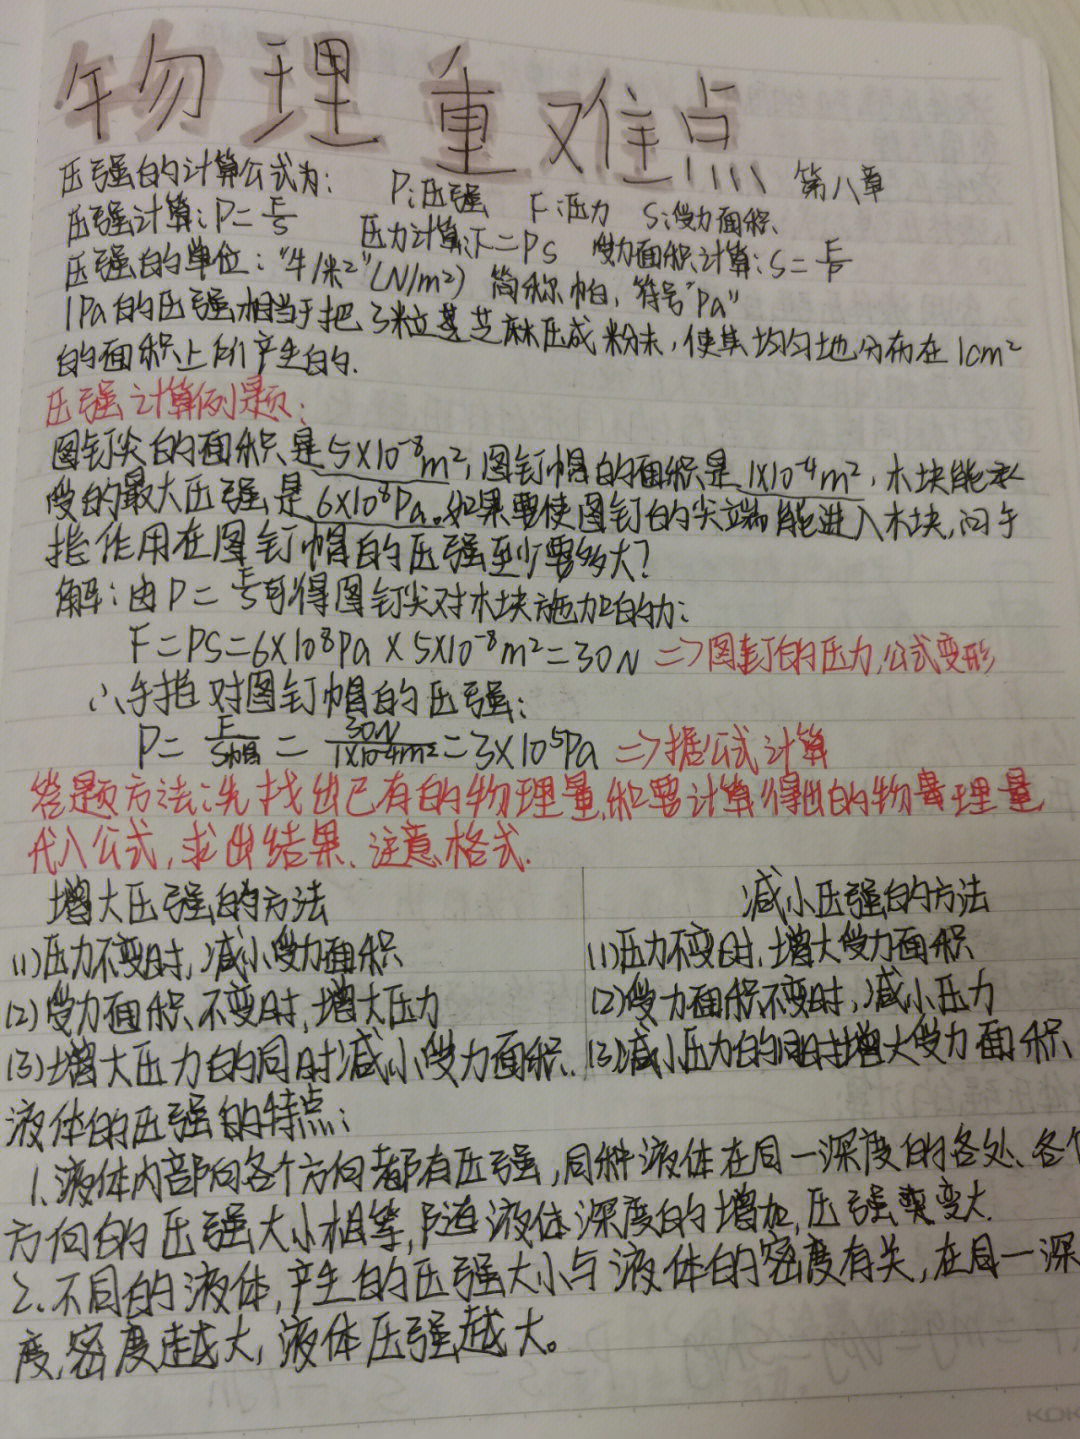 物理重难点
第八章
压强的计算公式为: P:压强 F:压力 S:受力面积.
压强计算:P=F/S 压力计算:F=PS 受力面积计算:S=F/P
压强的单位:"牛/米²"(N/m²) 简称帕,符号"Pa"
1Pa的压强相当于把3粒芝麻压成粉末,使其均匀地分布在1cm²
的面积上所产生的.
压强计算例题:
图钉尖的面积是5×10⁻⁸m²,图钉帽的面积是1×10⁻⁴m²,木块能承
受的最大压强是6×10⁸Pa。如果要使图钉的尖端能进入木块,问手
指作用在图钉帽的压强至少要多大?
解:由P=F/S可得图钉尖对木块施加的力:
F=PS=6×10⁸Pa×5×10⁻⁸m²=30N =>图钉的压力,公式变形
∴手指对图钉帽的压强:
P=F/S帽=30N/1×10⁻⁴m²=3×10⁵Pa =>据公式计算
答题方法:先找出已有的物理量,和要计算得出的物理量
代入公式,求出结果、注意格式.
增大压强的方法 减小压强的方法
(1)压力不变时,减小受力面积 (1)压力不变时,增大受力面积
(2)受力面积不变时,增大压力 (2)受力面积不变时,减小压力
(3)增大压力的同时减小受力面积. (3)减小压力的同时增大受力面积
液体的压强的特点:
1、液体内部向各个方向都有压强,同种液体在同一深度的各处、各个
方向的压强大小相等,随液体深度的增加,压强变大.
2、不同的液体,产生的压强大小与液体的密度有关,在同一深
度,密度越大,液体压强越大。